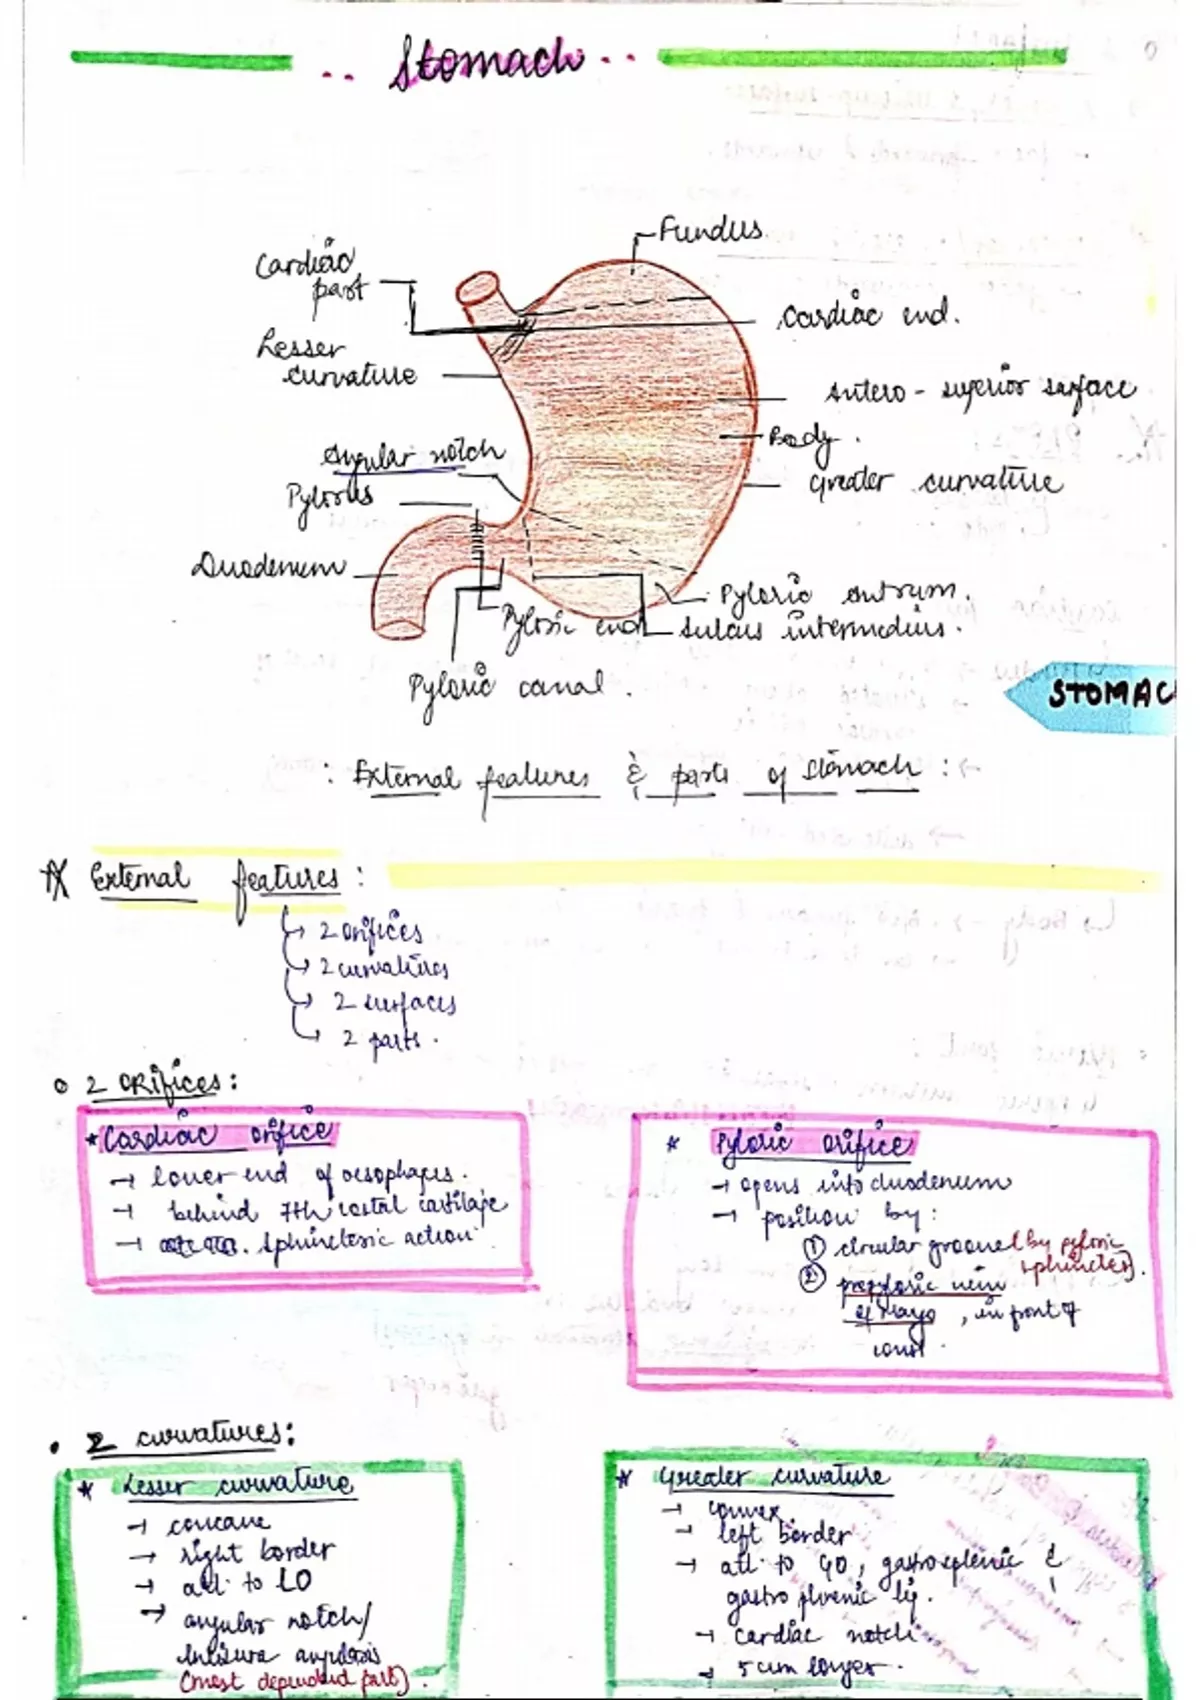 Stomach
Fundus
Cardiac
part
Cardiac end.
Lesser
curvature
Antero - superior surface
Body.
Angular notch
Greater curvature
Pylorus
Duodenum
Pyloric antrum.
Pyloric end
Sulcus intermedius.
Pyloric canal.
STOMAC
: External features & parts of stomach :
External features :
→ 2 orifices
→ 2 curvatures
→ 2 surfaces
→ 2 parts.
o 2 orifices :
* Cardiac orifice
→ lower end of oesophagus.
→ behind 7th costal cartilage
→ sphincteric action
* Pyloric orifice
→ opens into duodenum
→ position by :
① circular groove (by pyloric
sphincter).
② prepyloric vein
of Mayo, in front of
const.
• 2 curvatures :
* Lesser curvature
→ concave
→ right border
→ att. to LO
→ angular notch/
incisura angularis
(most dependent part).
* Greater curvature
→ convex.
→ left border
→ att. to GO, gastrosplenic &
gastrophrenic lig.
→ cardiac notch
→ 5 cum longer.